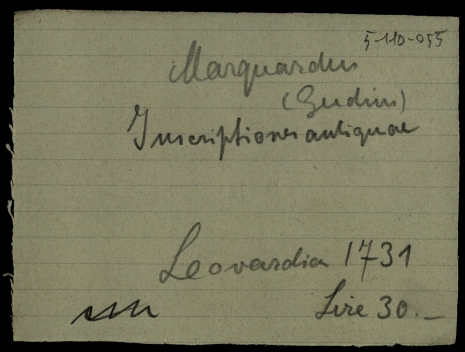 5-110-055
Marquardus
(Gudius)
Inscriptiones antiquae
Leovardia 1731
Lire 30.—